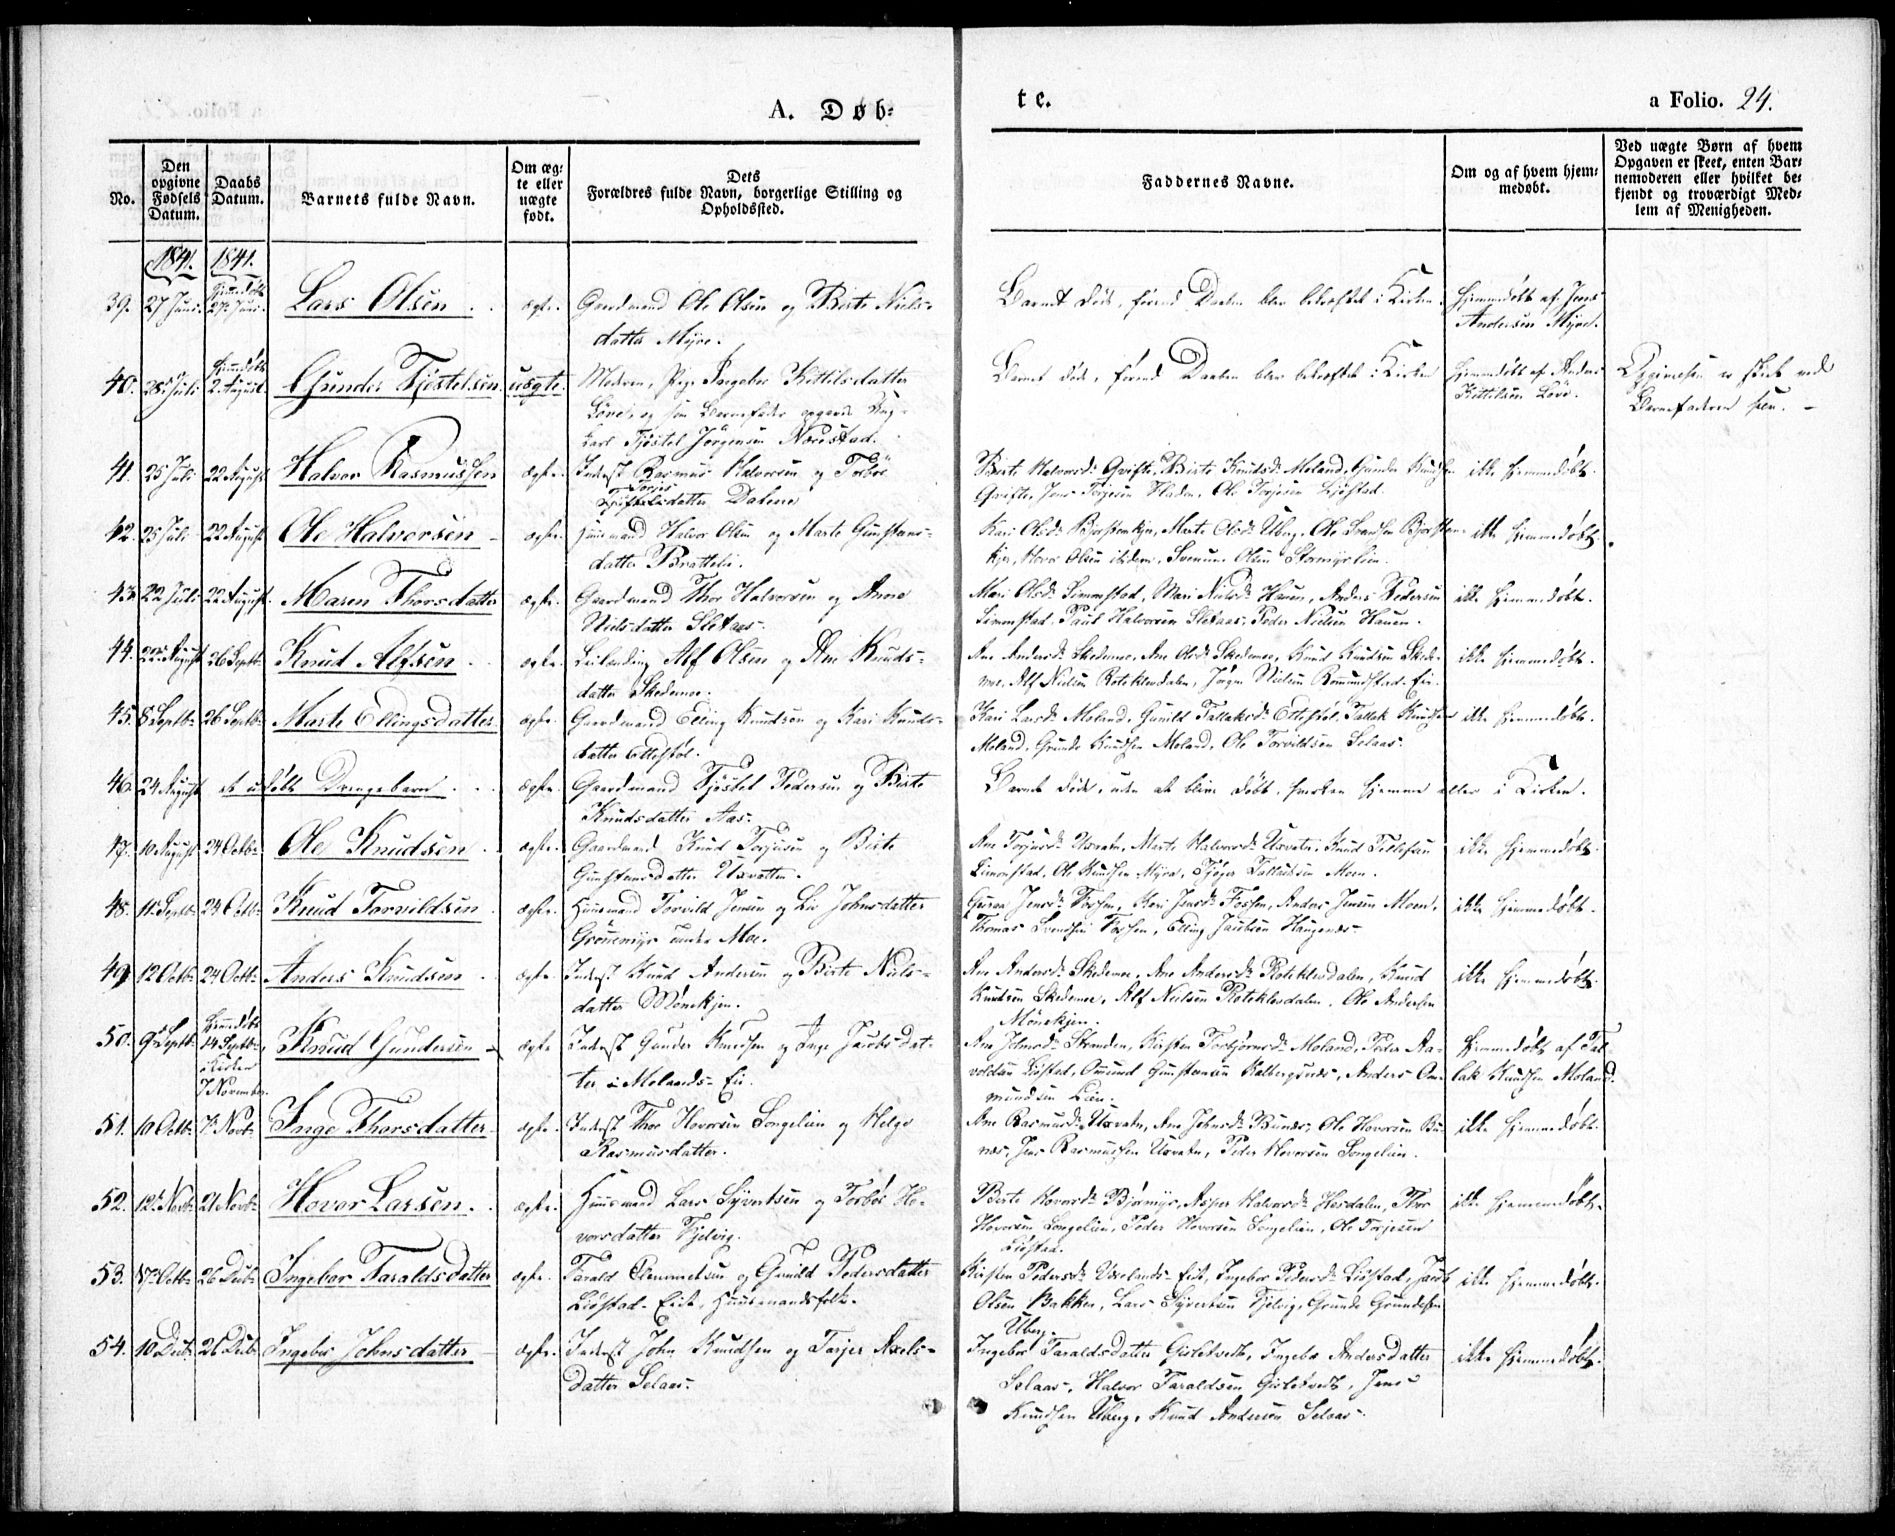 A. Døb-
te.
a Folio. 24.
No.
Den opgivne Fødsels Datum.
Daabs Datum.
Barnets fulde Navn.
Om æg-
te eller
uægte
født.
Dets
Forældres fulde Navn, borgerlige Stilling og
Opholdssted.
Faddernes Navne.
Om og af hvem hjem-
medøbt.
Ved uægte Børn af hvem
Opgaven er skeet, enten Bar-
nemoderen eller hvilket be-
kjendt og troværdigt Med-
lem af Menigheden.
1841. 1841.
39. 27 Juni. Hjemmedøbt 27 Juni. Lars Olsen ægte. Gaardmand Ole Olsen og Birte Niels-
datter Myre.
Barnet døde, førend Daaben blev bekræftet i Kirken. Hjemmedøbt af Jens
Andersen Myre.
40. 28 Juli Hjemmedøbt 2 August. Gunder Tjøstelsen uægte. Moderen, Pige Ingebor Kittilsdatter
Løvei, og som Barnefader opgivet Ung-
karl Tjøstel Jørgensen Næsestad.
Barnet døde, førend Daaben blev bekræftet i Kirken Hjemmedøbt af Anders
Kittilsen Løvei.
Opgivelsen er skeet ved
Barnefaderen selv.
41. 25 Juli 22 August Halvor Rasmussen ægte. Inderst Rasmus Halvorsen og Torbor
Torjes
datter Dalene
Birte Halvorsd. Gvifte, Birte Knudsd. Moland, Gunder Knudsen
Gvifte, Jens Torjesen Fladen, Ole Torjesen Liøstad.
ikke hjemmedøbt.
42. 25 Juli 22 August Ole Halvorsen ægte. Huusmand Halvor Olsen og Marte Gunstens-
datter Brattelie.
Kari Olsd. Bjorstenkjen, Marte Olsd. Uberg, Ole Svendsen Bjorsten-
kjen, Hovor Olsen ibidem, Svenum Olsen Stormyrlien.
ikke hjemmedøbt.
43. 22 Juli 22 August. Maren Thorsdatter ægte. Gaardmand Thor Halvorsen og Anne
Nielsdatter Sletaas.
Mari Olsd. Simonstad, Mari Nielsd. Hauen, Anders Pedersen
Simonstad, Paul Halvorsen Sletaas, Peder Nielsen Hauen.
ikke hjemmedøbt.
44. 22 August 26 Septb. Knud Alfsen ægte. Leilending Alf Olsen og Ane Knuds-
datter Skedemoe.
Ane Andersd. Skedemoe, Ane Olsd. Skedemoe, Knud Knudsen Skede-
moe, Alf Nielsen Roteklevdalen, Jørgen Nielsen Rommundstad-Eie.
ikke hjemmedøbt.
45. 8 Septb. 26 Septb. Marte Ellingsdatter ægte. Gaardmand Elling Knudsen og Kari Knuds-
datter Ettestøl.
Kari Larsd. Moland, Gunild Tallaksd. Ettestøl, Tallak Knudsen
Moland, Grunde Knudsen Moland, Ole Torvildsen Selaas.
ikke hjemmedøbt.
46. 24 August et udøbt Drengebarn ægte. Gaardmand Tjøstel Pedersen og Birte
Knudsdatter Aas.
Barnet døde, uden at blive døbt, hverken hjemme eller i Kirken.
47. 10 August 24 Octb. Ole Knudsen ægte. Gaardmand Knud Torjusen og Birte
Gunstensdatter Uxvatten.
Ane Torjusd. Uxvatn, Marte Halvorsd. Uxvatn, Knud Tellefsen
Simonstad, Ole Knudsen Myra, Tjøger Moen.
ikke hjemmedøbt.
48. 11 Septb. 24 Octb. Knud Torvildsen ægte. Huusmand Torvild Jensen og Liv Johnsdatter
Grønemyr under Moe.
Guroe Jensd. Fossen, Kari Jensd. Fossen, Anders Jensen Moen,
Thomas Svendsen Fossen, Elling Jacobsen Haugenæs
ikke hjemmedøbt.
49 12 Octb. 24 Octb. Anders Knudsen ægte. Inderst Knud Andersen og Birte Niels-
datter Mønekjen.
Ane Andersd. Skedemoe, Ane Andersd. Roteklevdalen, Knud
Knudsen Skedemoe, Alf Nielsen Roteklevdalen, Ole Andersen
Mønekjen.
ikke hjemmedøbt.
50. 9 Septb. Hjemmedøbt 14 Septb. i Kirken 7 November. Knud Gundersen ægte Inderst Gunder Knudsen og Inge Jacobsdat-
ter i Molands-Eie.
Ane Jensd. Stranden, Kirsten Torbjørnsd. Moland, Peder Aa-
voldsen Liøstad, Omund Gunstensen, Anders Om-
mundsen Lien.
Hjemmedøbt af Tal-
lak Knudsen Moland.
51. 10 Octb. 7 Novb. Inge Thorsdatter ægte. Inderst Thor Hovorsen Songelien og Helge
Rasmusdatter.
Ane Rasmusd. Uxvatn, Ane Johnsd. Bunæs, Ole Hovorsen Bu-
næs, Jens Rasmussen Uxvatn, Peder Hovorsen Songelien.
ikke hjemmedøbt.
52. 12 Novb. 21 Novb. Hovor Larsen. ægte. Huusmand Lars Syvertsen og Torbor Ho-
vorsdatter Fjelvig.
Birte Hovorsd. Bjørmyr, Asper Halvorsd. Hesdalen, Thor
Hovorsen Songelien, Peder Hovorsen Songelien, Ole Torjesen
Liøstad.
ikke hjemmedøbt.
53. Octb. 26 Decb. Ingebor Taraldsdatter ægte. Tarald Clemmetsen og Gunild Pedersdatter
Liøstad-Eiet, Huusmandsfolk.
Kirsten Pedersd. Uxelands-Eie, Ingebor Pedersd. Liøstad, Jacob
Olsen Bakken, Lars Syvertsen Fjelvig, Grunde Grundesen
Uberg.
ikke hjemmedøbt.
54. 10 Decb. 26 Decb. Ingebor Johnsdatter ægte. Inderst John Knudsen og Tarjer Axels-
datter Selaas.
Ingebor Taraldsdatter Gislekvedt, Ingebor Andersdatter
Selaas, Halvor Taraldsen Gislekvedt, Jens
Knudsen Uberg, Knud Andersen Selaas.
ikke hjemmedøbt.